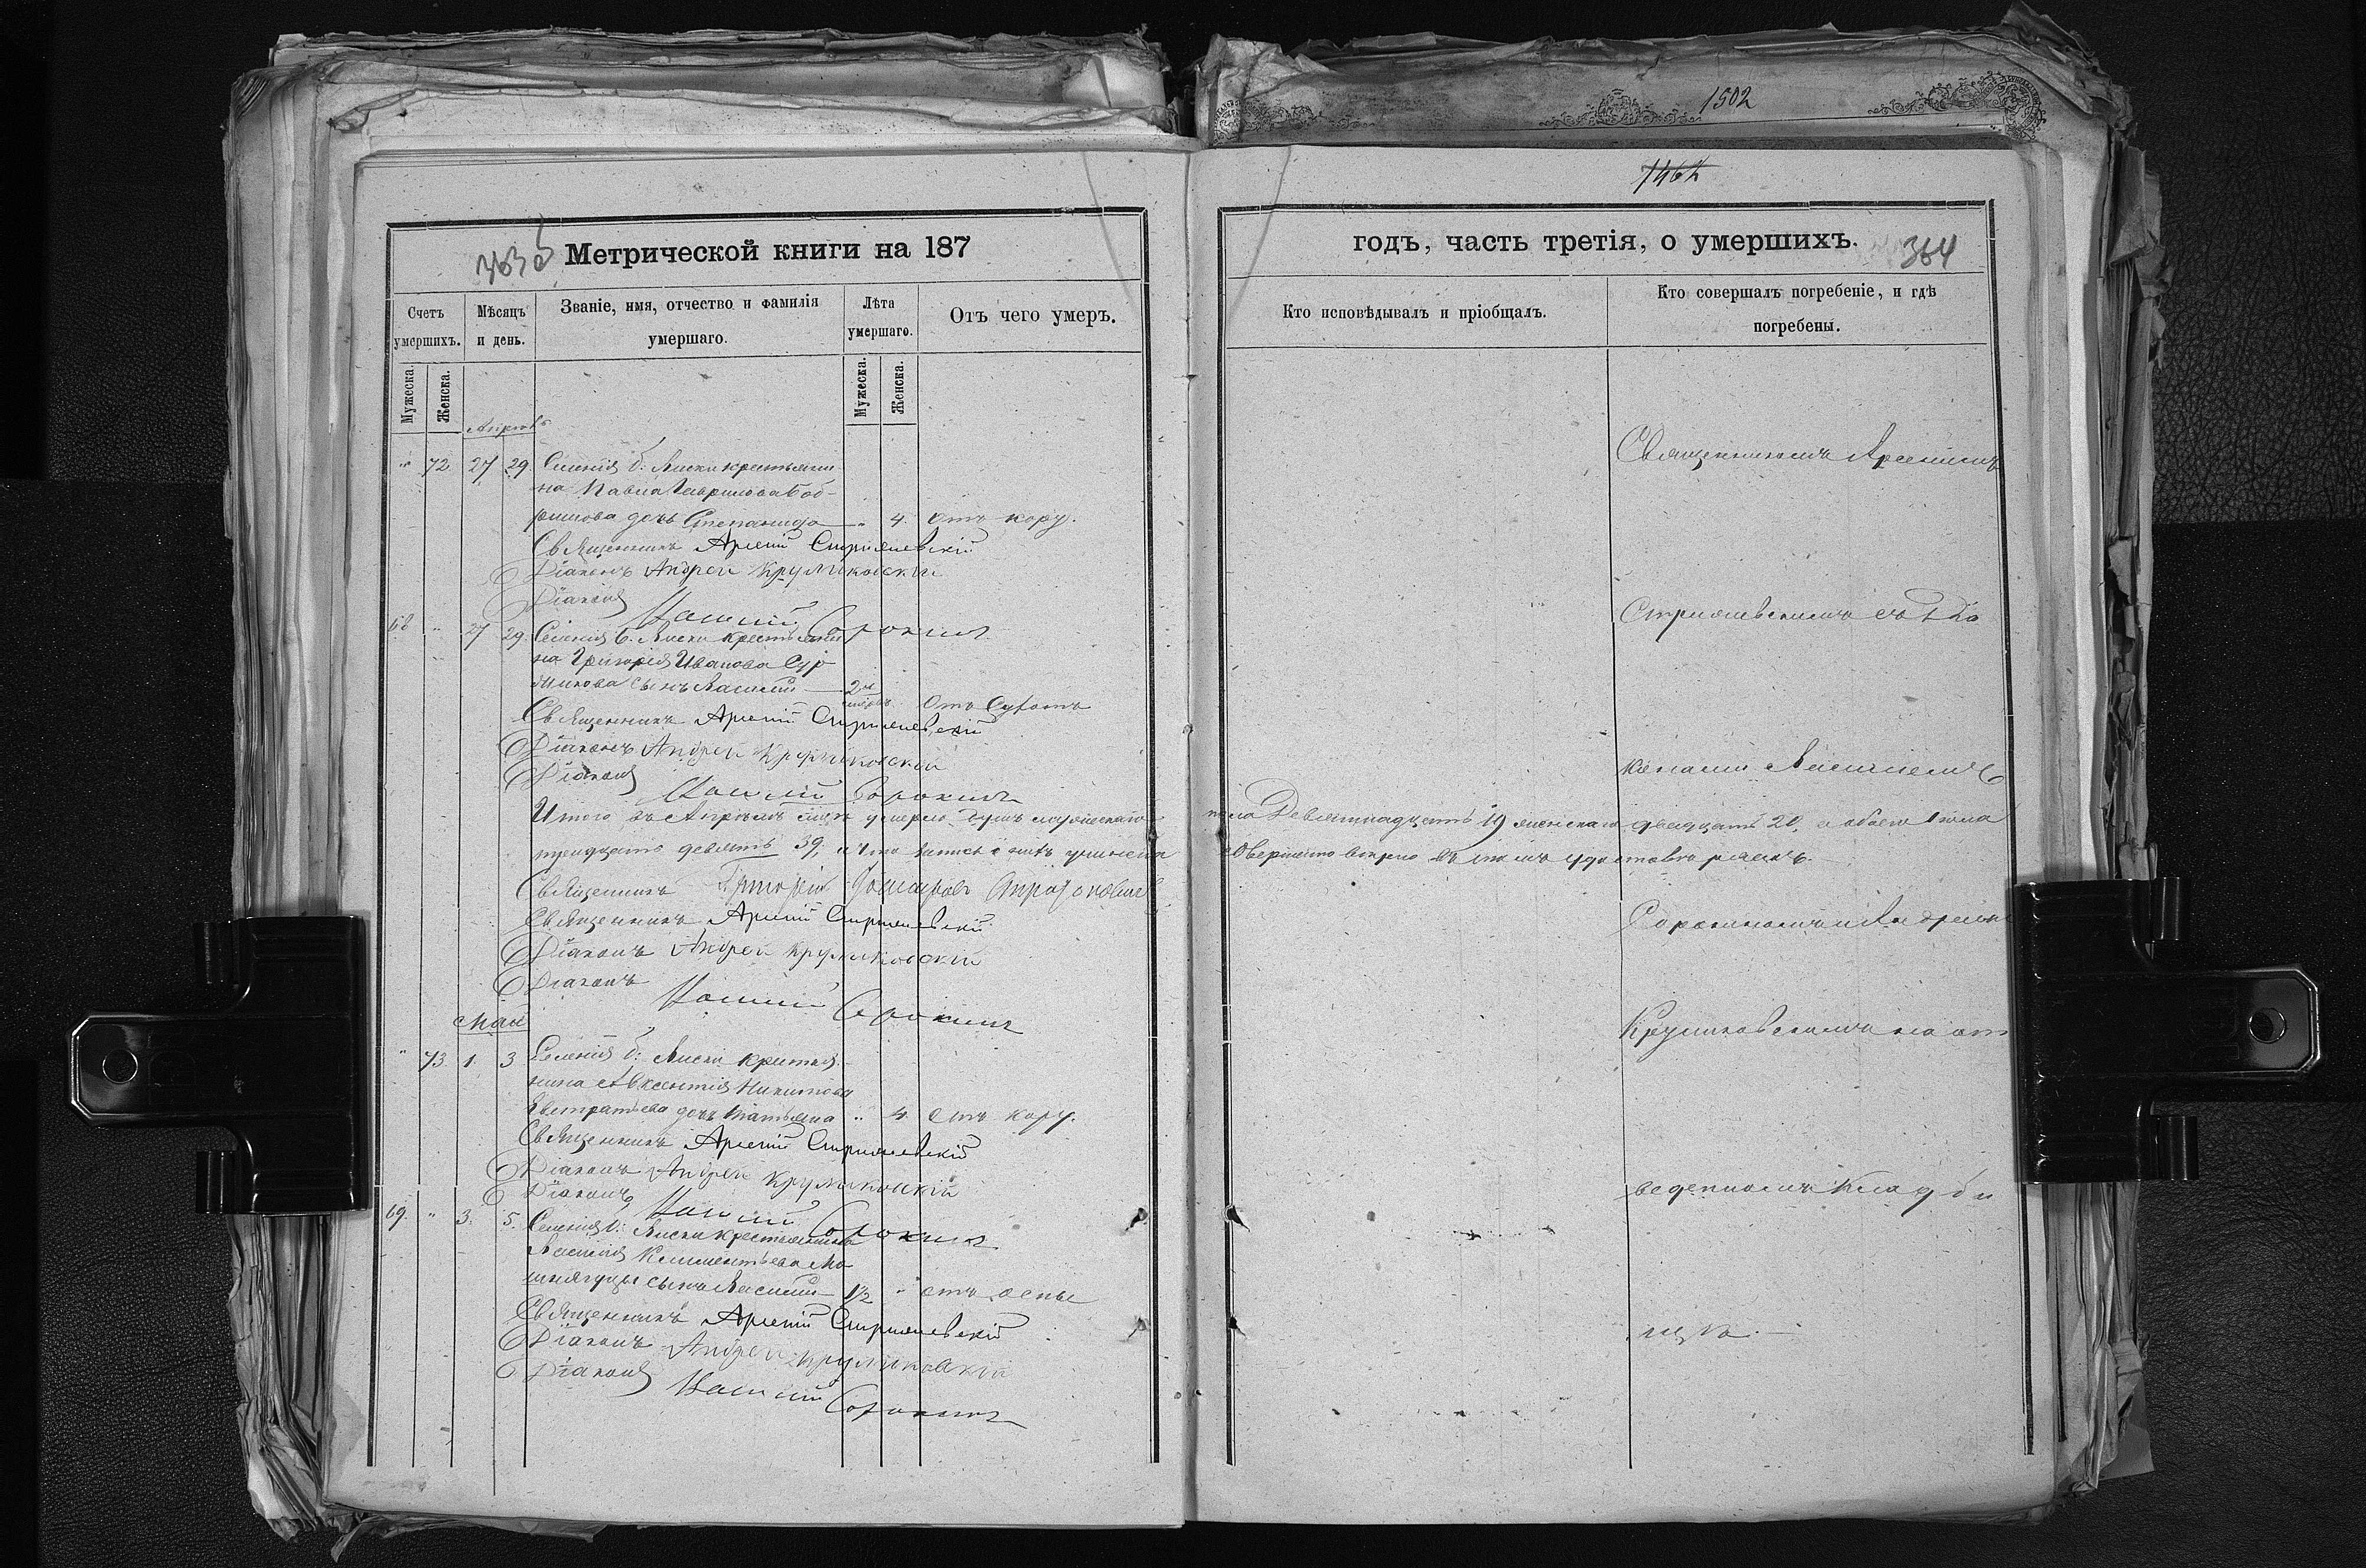 1502
1462
363 об
Метрической книги на 187
годъ, часть третія, о умершихъ.
364
Счетъ умершихъ.
Мѣсяцъ и день.
Званіе, имя, отчество и фамилія умершаго.
Лѣта умершаго.
Отъ чего умеръ.
Кто исповѣдывалъ и пріобщалъ.
Кто совершалъ погребеніе, и гдѣ погребены.
Мужеска.
Женска.
Мужеска.
Женска.
Апрѣль
" 72 27 29 Селенія б. Лиски крестьяни
на Павла Гаврилова Боб-
рикова дочь Степанида " 4. отъ кору.
Священникъ Арсеній
Діаконъ Андрей Крупиковскій
Діаконъ Василій Сорокинъ
68 " 27 29. Селенія б. Лиски крестьяни
на Григорія Иванова Суд
сынъ Василій 2
Священникъ Арсеній
Діаконъ Андрей Крупиковскій
Діаконъ Василій Сорокинъ
Итого въ Апрѣлѣ умерло душъ мужескаго
пола Девятнадцать 19 женскаго двадцать 20, а обоего пола
тридцать девять 39, и что запись
совершенно вѣрно въ томъ удостовѣряемъ.
Священникъ Григорій
Священникъ Арсеній
Діаконъ Андрей Крупиковскій
Діаконъ Василій Сорокинъ
Май
" 73 1. 3 Селенія б. Лиски крестья
нина Авксентія Никитова
Евстратьева дочь Татьяна " 4. отъ кору.
Священникъ Арсеній
Діаконъ Андрей Крупиковскій
Діаконъ Василій Сорокинъ
69. " 3. 5. Селенія б. Лиски крестьянина
Василія Климентьева Мо
сынъ Василій 1½ " отъ оспы
Священникъ Арсеній
Діаконъ Андрей Крупиковскій
Діаконъ Василій Сорокинъ
Священникомъ Арсеніемъ
съ Діа
конами Василіемъ
Сорокинымъ и Андреемъ
Крупиковскимъ на от
веденномъ кладби
щѣ.